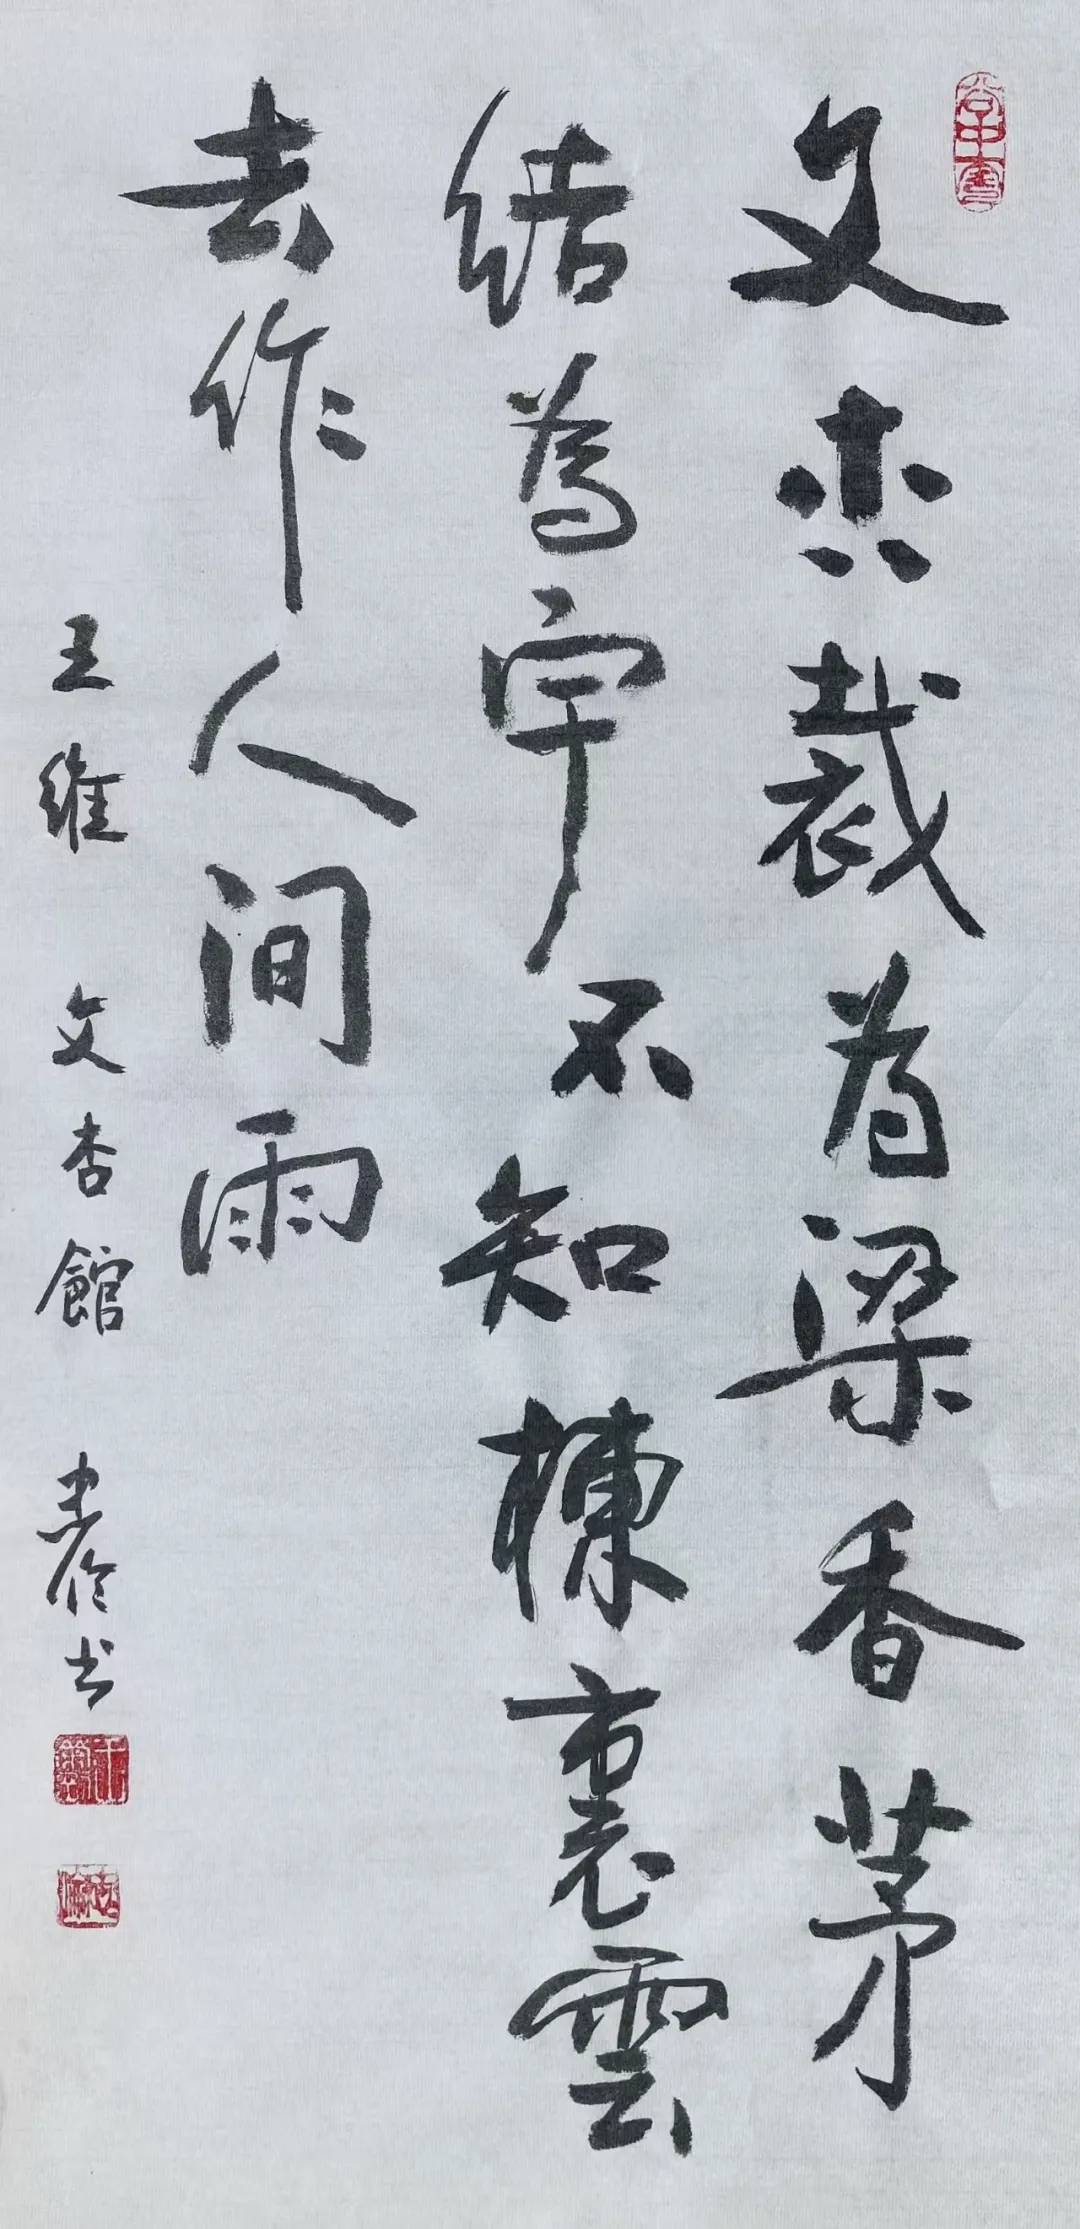 文杏裁为梁香茅
结為宇不知棟裏雲
去作人间雨
王維 文杏館 书